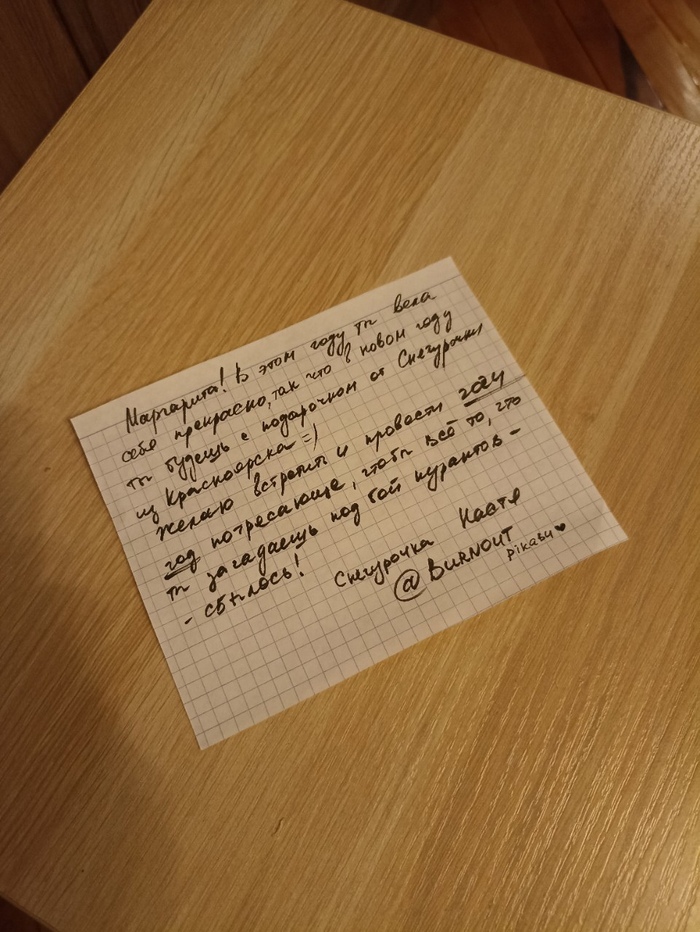 Маргарита! В этом году ты вела
себя прекрасно, так что в новом году
ты будешь с подарочком от Снегурочки
из Красноярска =)
Желаю встретить и провести
год потрясающе, чтобы всё то, что
ты загадаешь под бой курантов -
- сбылось!
Снегурочка Кастя
@BURNOUT
pikabu♥